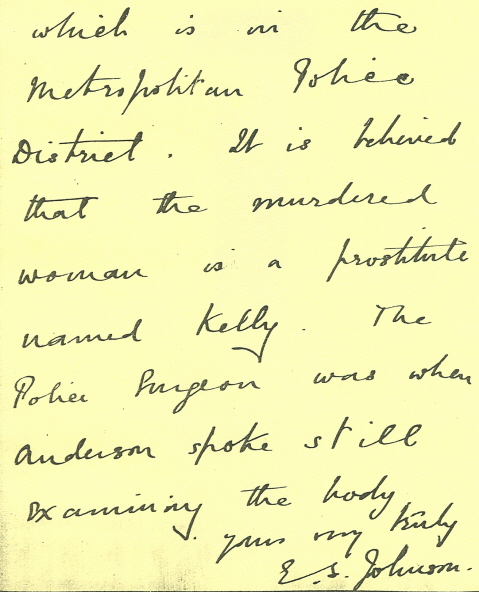 which is in the
Metropolitan Police
District. It is believed
that the murdered
woman is a prostitute
named Kelly. The
Police Surgeon was when
Anderson spoke still
examining the body
yours very truly
E. S. Johnson.